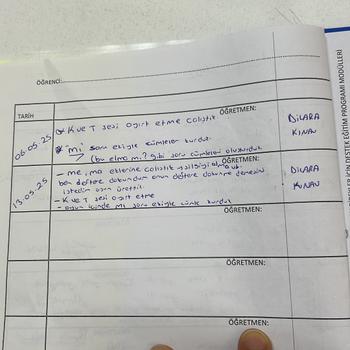 ÖĞRENCİ:
TARİH
ÖĞRETMEN:
06.05.25
* K ve T sesi ayırt etme çalıştık
* mi soru ekiyle cümleler kurduk.
(bu elma mı? gibi soru cümleleri oluşturduk
DİLARA
KINAV
ÖĞRETMEN:
13.05.25
- me, ma eklerine çalıştık
ben deftere dokundum onun deftere dokunma demesini
istedim
- K ve T sesi ayırt etme
- oyun içinde mi soru ekiyle cümle kurduk
DİLARA
KINAV
ÖĞRETMEN:
ÖĞRETMEN:
ÖĞRETMEN:
İÇİN DESTEK EĞİTİM PROGRAMI MODÜLLERİ